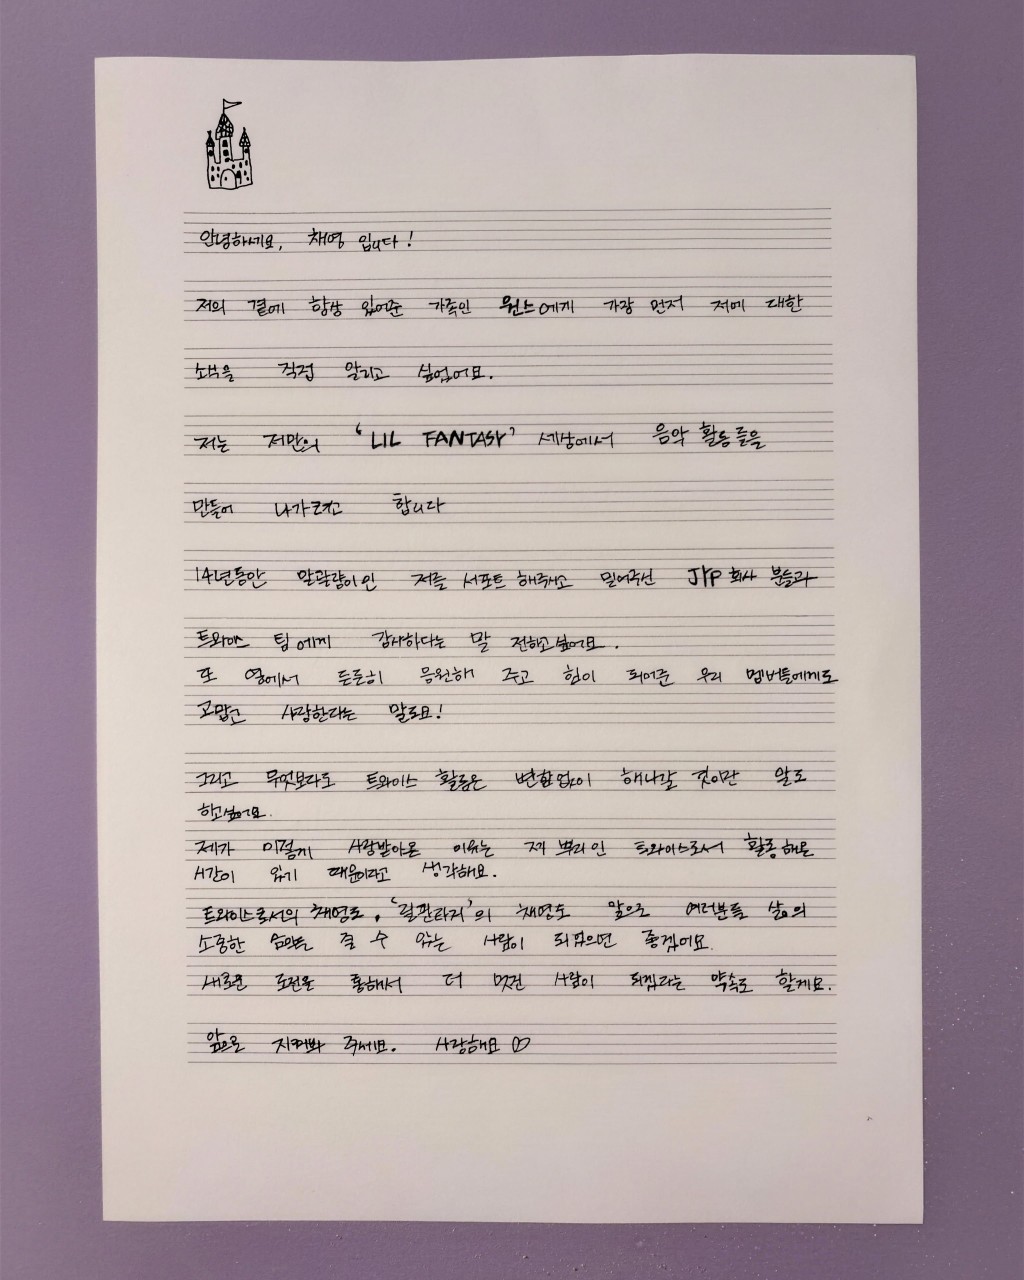 안녕하세요, 채영 입니다!
저의 곁에 항상 있어준 가족인 원스에게 가장 먼저 저에 대한
소식을 직접 알리고 싶었어요.
저는 저만의 'LIL FANTASY' 세상에서 음악 활동들을
만들어 나가려고 합니다
14년동안 말괄량이인 저를 서포트 해주시고 밀어주신 JYP 회사 분들과
트와이스 팀에게 감사하다는 말 전하고싶어요.
또 옆에서 든든히 응원해 주고 힘이 되어준 우리 멤버들에게도
고맙고 사랑한다는 말도요!
그리고 무엇보다도 트와이스 활동은 변함없이 해나갈 것이란 말도
하고싶어요.
제가 이렇게 사랑받아온 이유는 제 뿌리인 트와이스로서 활동해온
시간이 있기 때문이라고 생각해요.
트와이스로서의 채영도, '릴판타지'의 채영도 앞으로 여러분들 삶의
소중한 을 줄 수 있는 사람이 되었으면 좋겠어요.
새로운 도전을 통해서 더 멋진 사람이 되겠다는 약속도 할게요.
앞으로 지켜봐 주세요. 사랑해요 ♡